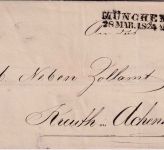 MÜNCHEN
28 MAR. 1824
An das
Neben Zollamt
Kreuth Achen